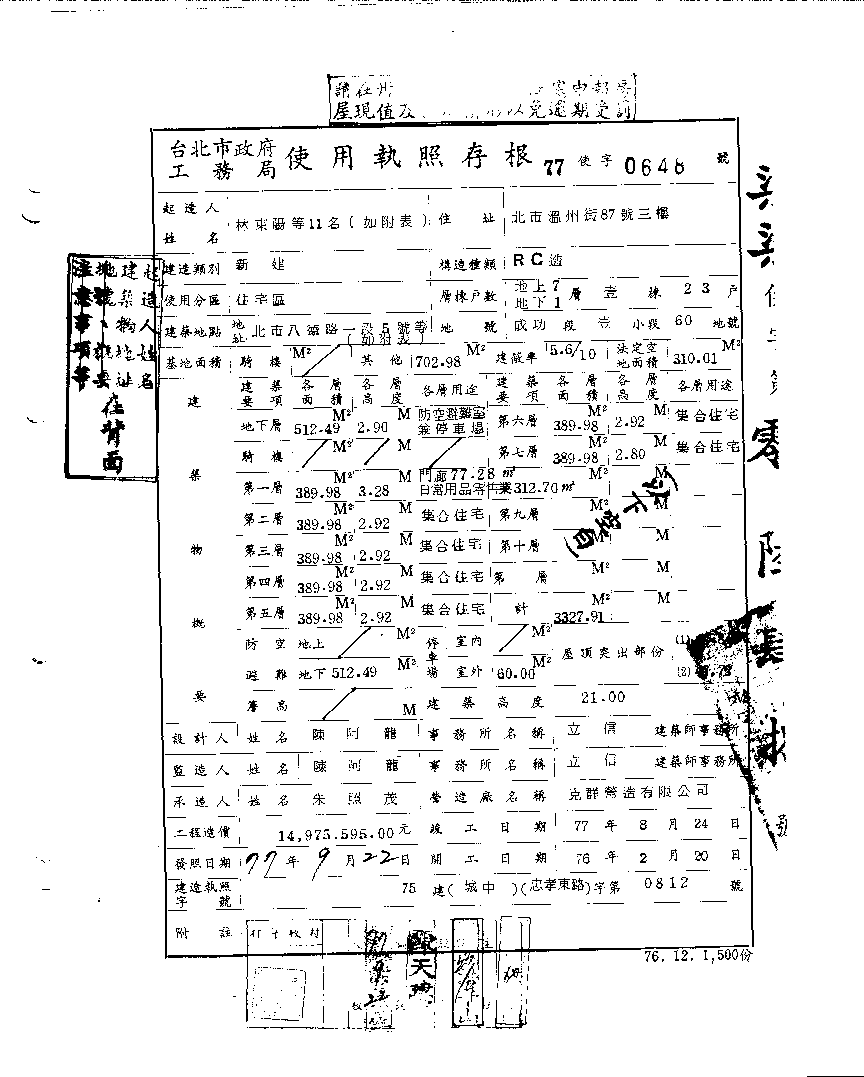 屋現值及 以免逾期受罰
台北市政府工務局 使用執照存根 77 使字 0648 號
起造人姓名 林東陽等11名(如附表) 住址 北市溫州街87號三樓
建造類別 新建 構造種類 RC造
使用分區 住宅區 層棟戶數 地上7 地下1 層 壹棟 23戶
建築地點 地址 北市八德路一段5號等(如附表) 地號 成功段壹小段60地號
基地面積 騎樓 M² 其他 702.98 建蔽率 5.6/10 法定空地面積 310.01 M²
建築要項 各層面積 各層高度 各層用途 建築要項 各層面積 各層高度 各層用途
地下層 512.49 M² 2.90 M 防空避難室兼停車場 第六層 389.98 M² 2.92 M 集合住宅
騎樓 M² M 第七層 389.98 M² 2.80 M 集合住宅
第一層 389.98 M² 3.28 M 門廊77.28㎡ 日常用品零售業312.70㎡
第二層 389.98 M² 2.92 M 集合住宅 第九層 M² M
第三層 389.98 M² 2.92 M 集合住宅 第十層 M² M
第四層 389.98 M² 2.92 M 集合住宅 第 層 M² M
第五層 389.98 M² 2.92 M 集合住宅 計 3327.91 M² M
(以下空白)
建築物概要
防空避難 地上 M² 停車場 室內 M² 屋頂突出部份 (1)
地下 512.49 M² 室外 60.00 M² (2)
簷高 M 建築高度 21.00
設計人 姓名 陳阿龍 事務所名稱 立信 建築師事務所
監造人 姓名 陳阿龍 事務所名稱 立信 建築師事務所
承造人 姓名 朱照茂 營造廠名稱 克群營造有限公司
工程造價 14,975.595.00元 竣工日期 77年8月24日
發照日期 77年9月22日 開工日期 76年2月20日
建造執照字號 75 建(城中)(忠孝東路)字第 0812 號
附註
76.12.1,500份
起造人姓名
建築物地址
地號、概要
注意事項等
在背面
零
號